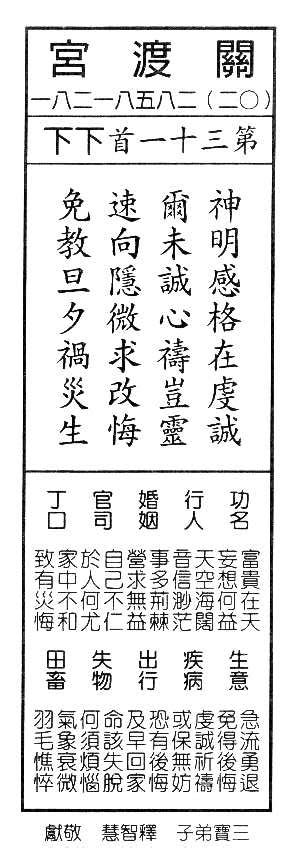 關渡宮
(〇二)二八五八一二八一
第三十一首下下
神明感格在虔誠
爾未誠心禱豈靈
速向隱微求改悔
免教旦夕禍災生
功名
富貴在天
妄想何益
行人
天空海闊
音信渺茫
婚姻
事多荊棘
營求無益
官司
自己不仁
於人何尤
丁口
家中不和
致有災悔
生意
急流勇退
免得後悔
疾病
虔誠祈禱
或保無妨
出行
恐有後悔
及早回家
失物
命該失脫
何須煩惱
田畜
氣象衰微
羽毛憔悴
三寶弟子 釋智慧 敬獻